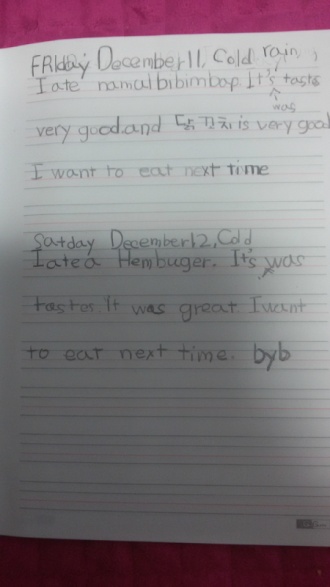 FRIday December 11, Cold rain,
I ate namulbibimbap. It's tasts
was
very good.and 닭꼬치 is very good
I want to eat next time
Satday December 12, Cold
I ate a Hembuger. It's was
tastes It was great I want
to eat next time. byb